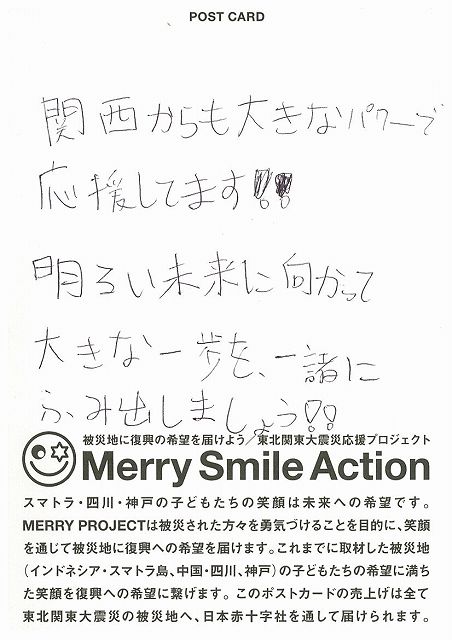 POST CARD
関西からも大きなパワーで
応援してます!!
明るい未来に向かって
大きな一歩を、一諸に
ふみ出しましょう!!
被災地に復興の希望を届けよう/東北関東大震災応援プロジェクト
Merry Smile Action
スマトラ・四川・神戸の子どもたちの笑顔は未来への希望です。
MERRY PROJECTは被災された方々を勇気づけることを目的に、笑顔
を通じて被災地に復興への希望を届けます。これまでに取材した被災地
(インドネシア・スマトラ島、中国・四川、神戸)の子どもたちの希望に満ち
た笑顔を復興への希望に繋げます。このポストカードの売上げは全て
東北関東大震災の被災地へ、日本赤十字社を通して届けられます。